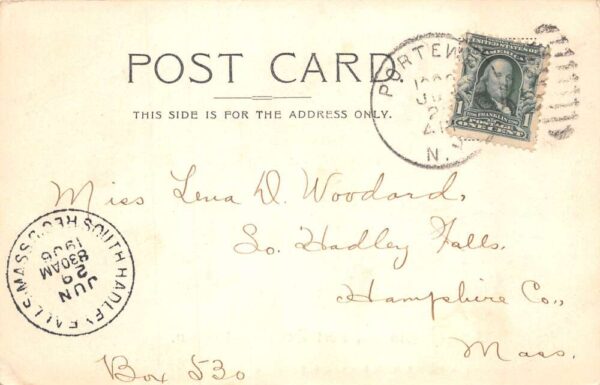 POST CARD
THIS SIDE IS FOR THE ADDRESS ONLY.
UNITED STATES OF
AMERICA
1 FRANKLIN 1
POSTAGE
ONE CENT
N.
Miss Lena D. Woodard,
So. Hadley Falls.
Hampshire Co.,
Mass.
Box 530
SOUTH HADLEY FALLS MASS. REC'D.
JUN
29
830AM
1906